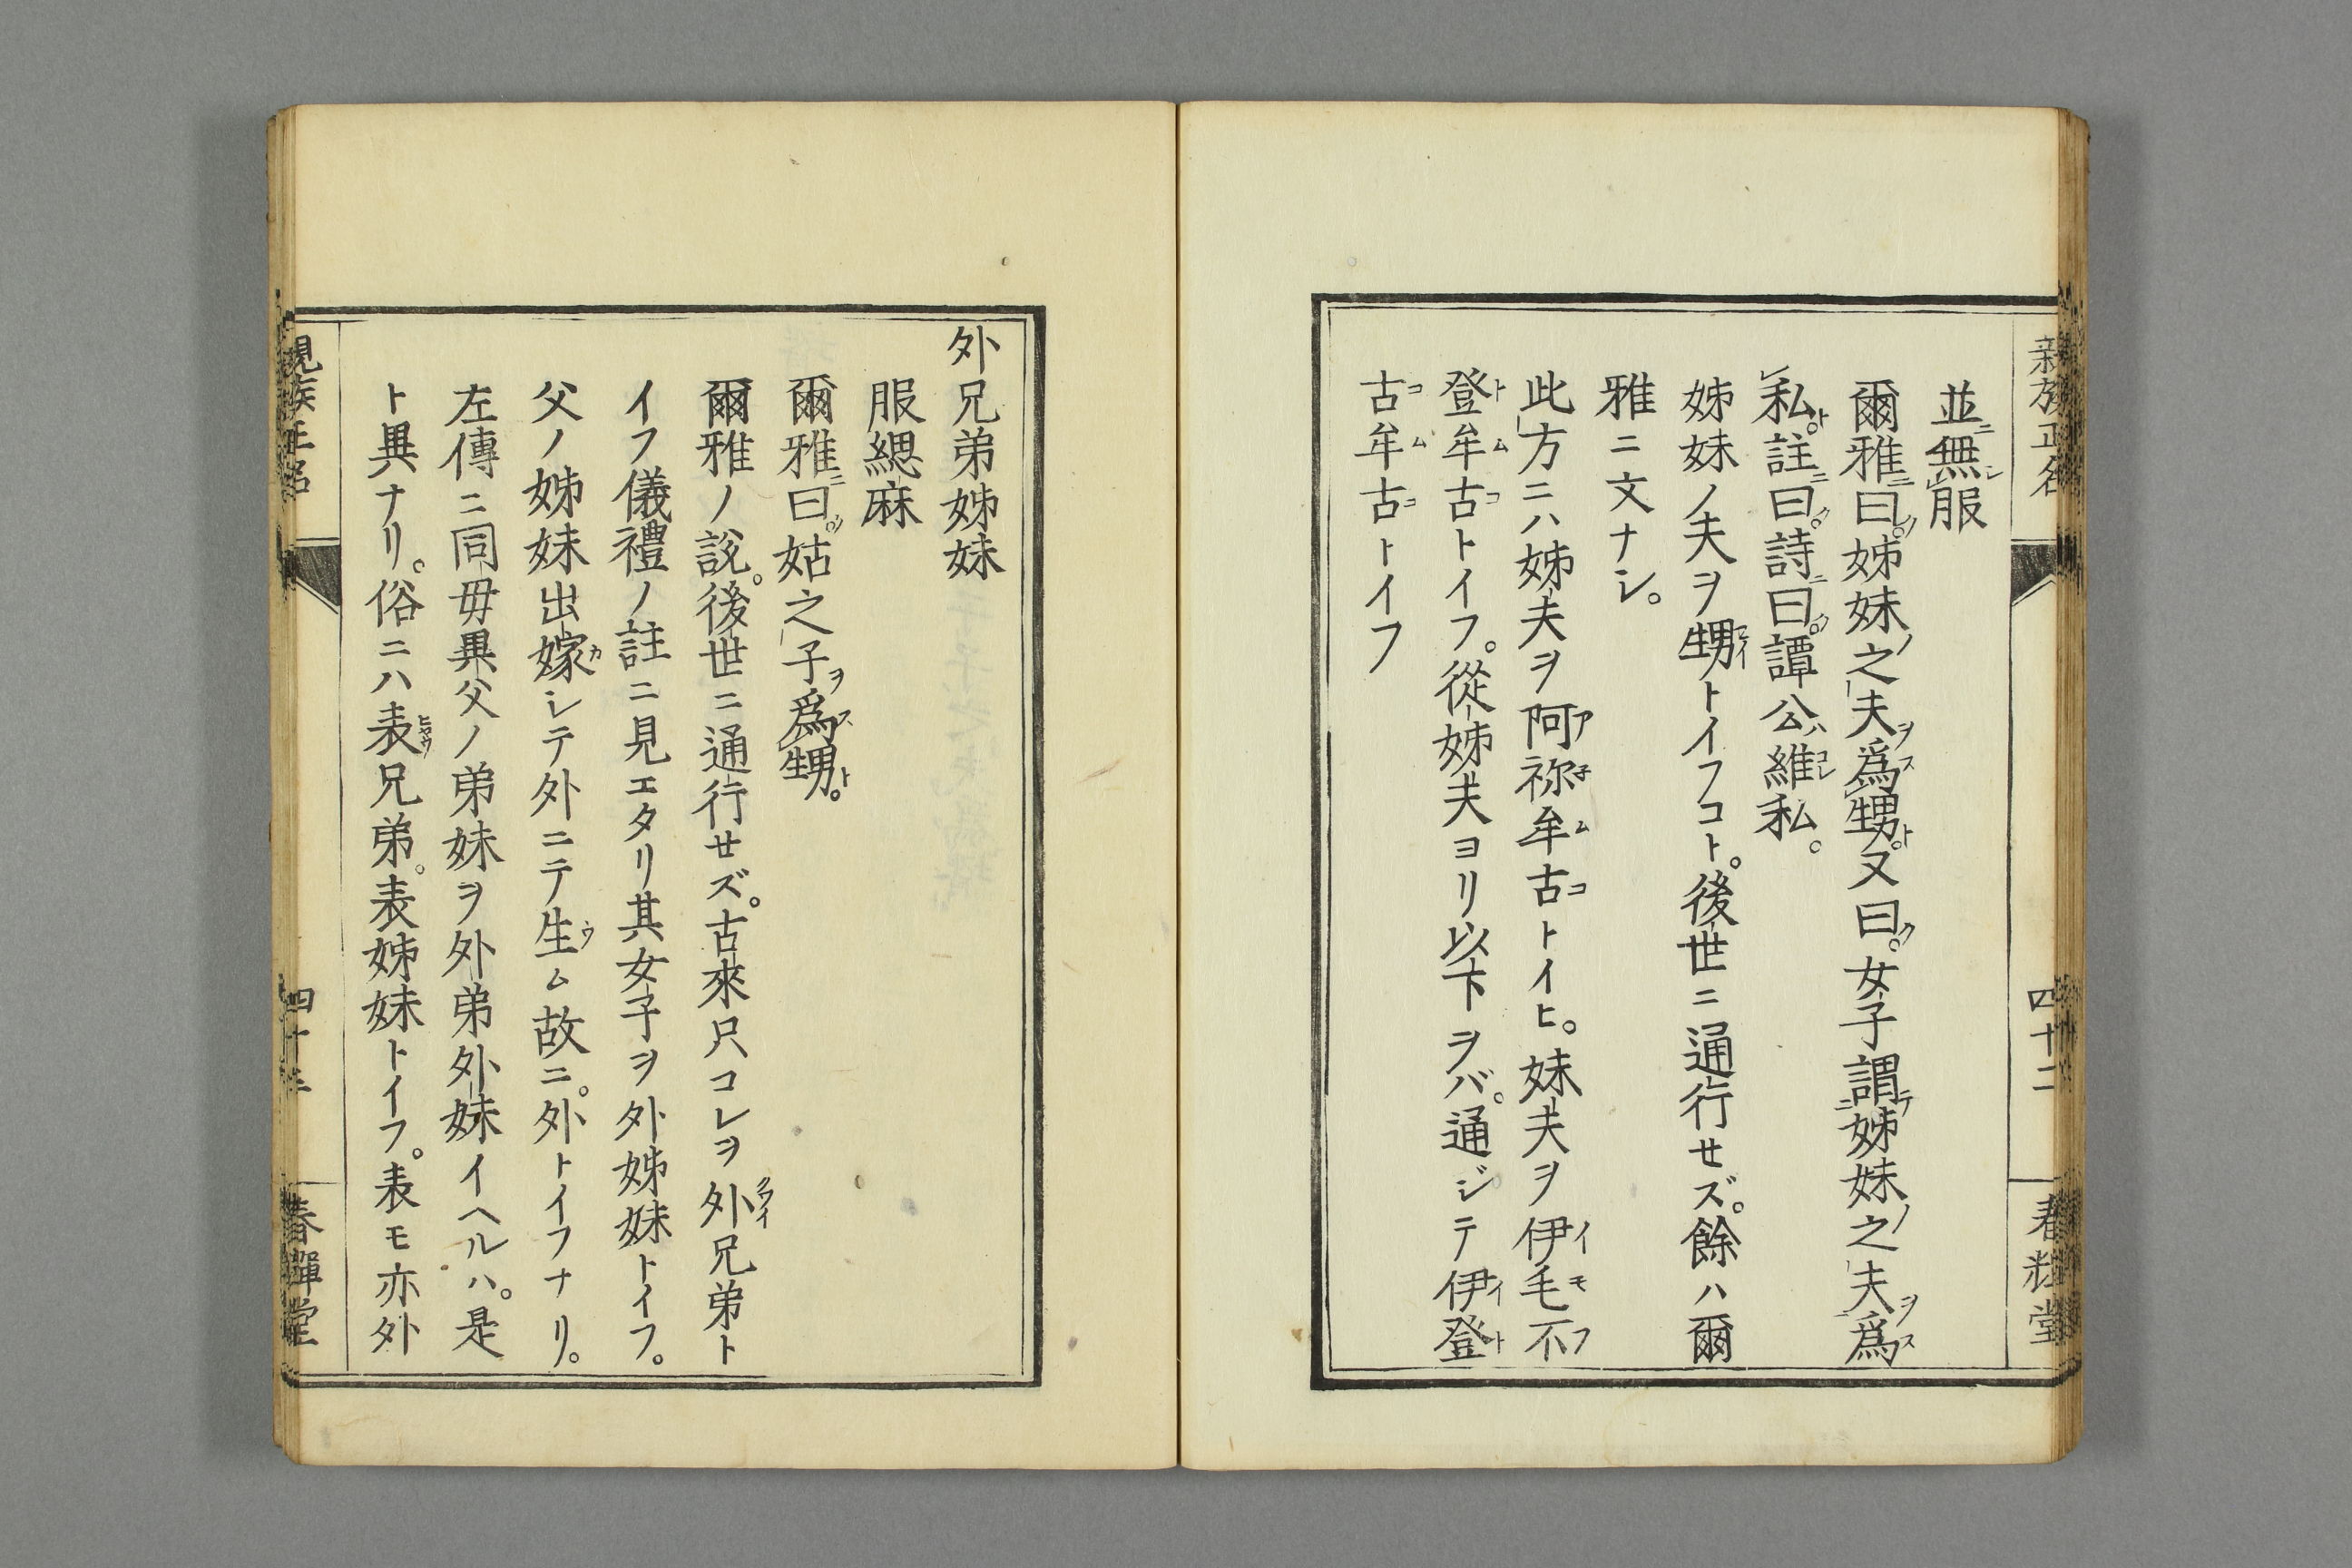 並無服
爾雅曰。姊妹之夫爲甥。又曰。女子謂姊妹之夫爲
私。註曰。詩曰。譚公維私。
姊妹ノ夫ヲ甥トイフコト。後世ニ通行せズ。餘ハ爾
雅ニ文ナシ。
此方ニハ姊夫ヲ阿祢牟古トイヒ。妹夫ヲ伊毛不
登牟古トイフ。從姊夫ヨリ以下ヲバ。通ジテ伊登
古牟古トイフ
親族正名
四十二
春輝堂
外兄弟姊妹
服緦麻
爾雅曰。姑之子爲甥。
爾雅ノ說。後世ニ通行せズ。古來只コレヲ外兄弟ト
イフ儀禮ノ註ニ見エタリ其女子ヲ外姊妹トイフ。
父ノ姊妹出嫁シテ外ニテ生ム故ニ。外トイフナリ。
左傳ニ同毋異父ノ弟妹ヲ外弟外妹イヘルハ。是
ト異ナリ。俗ニハ表兄弟。表姊妹トイフ。表モ亦外
親族正名
春輝堂